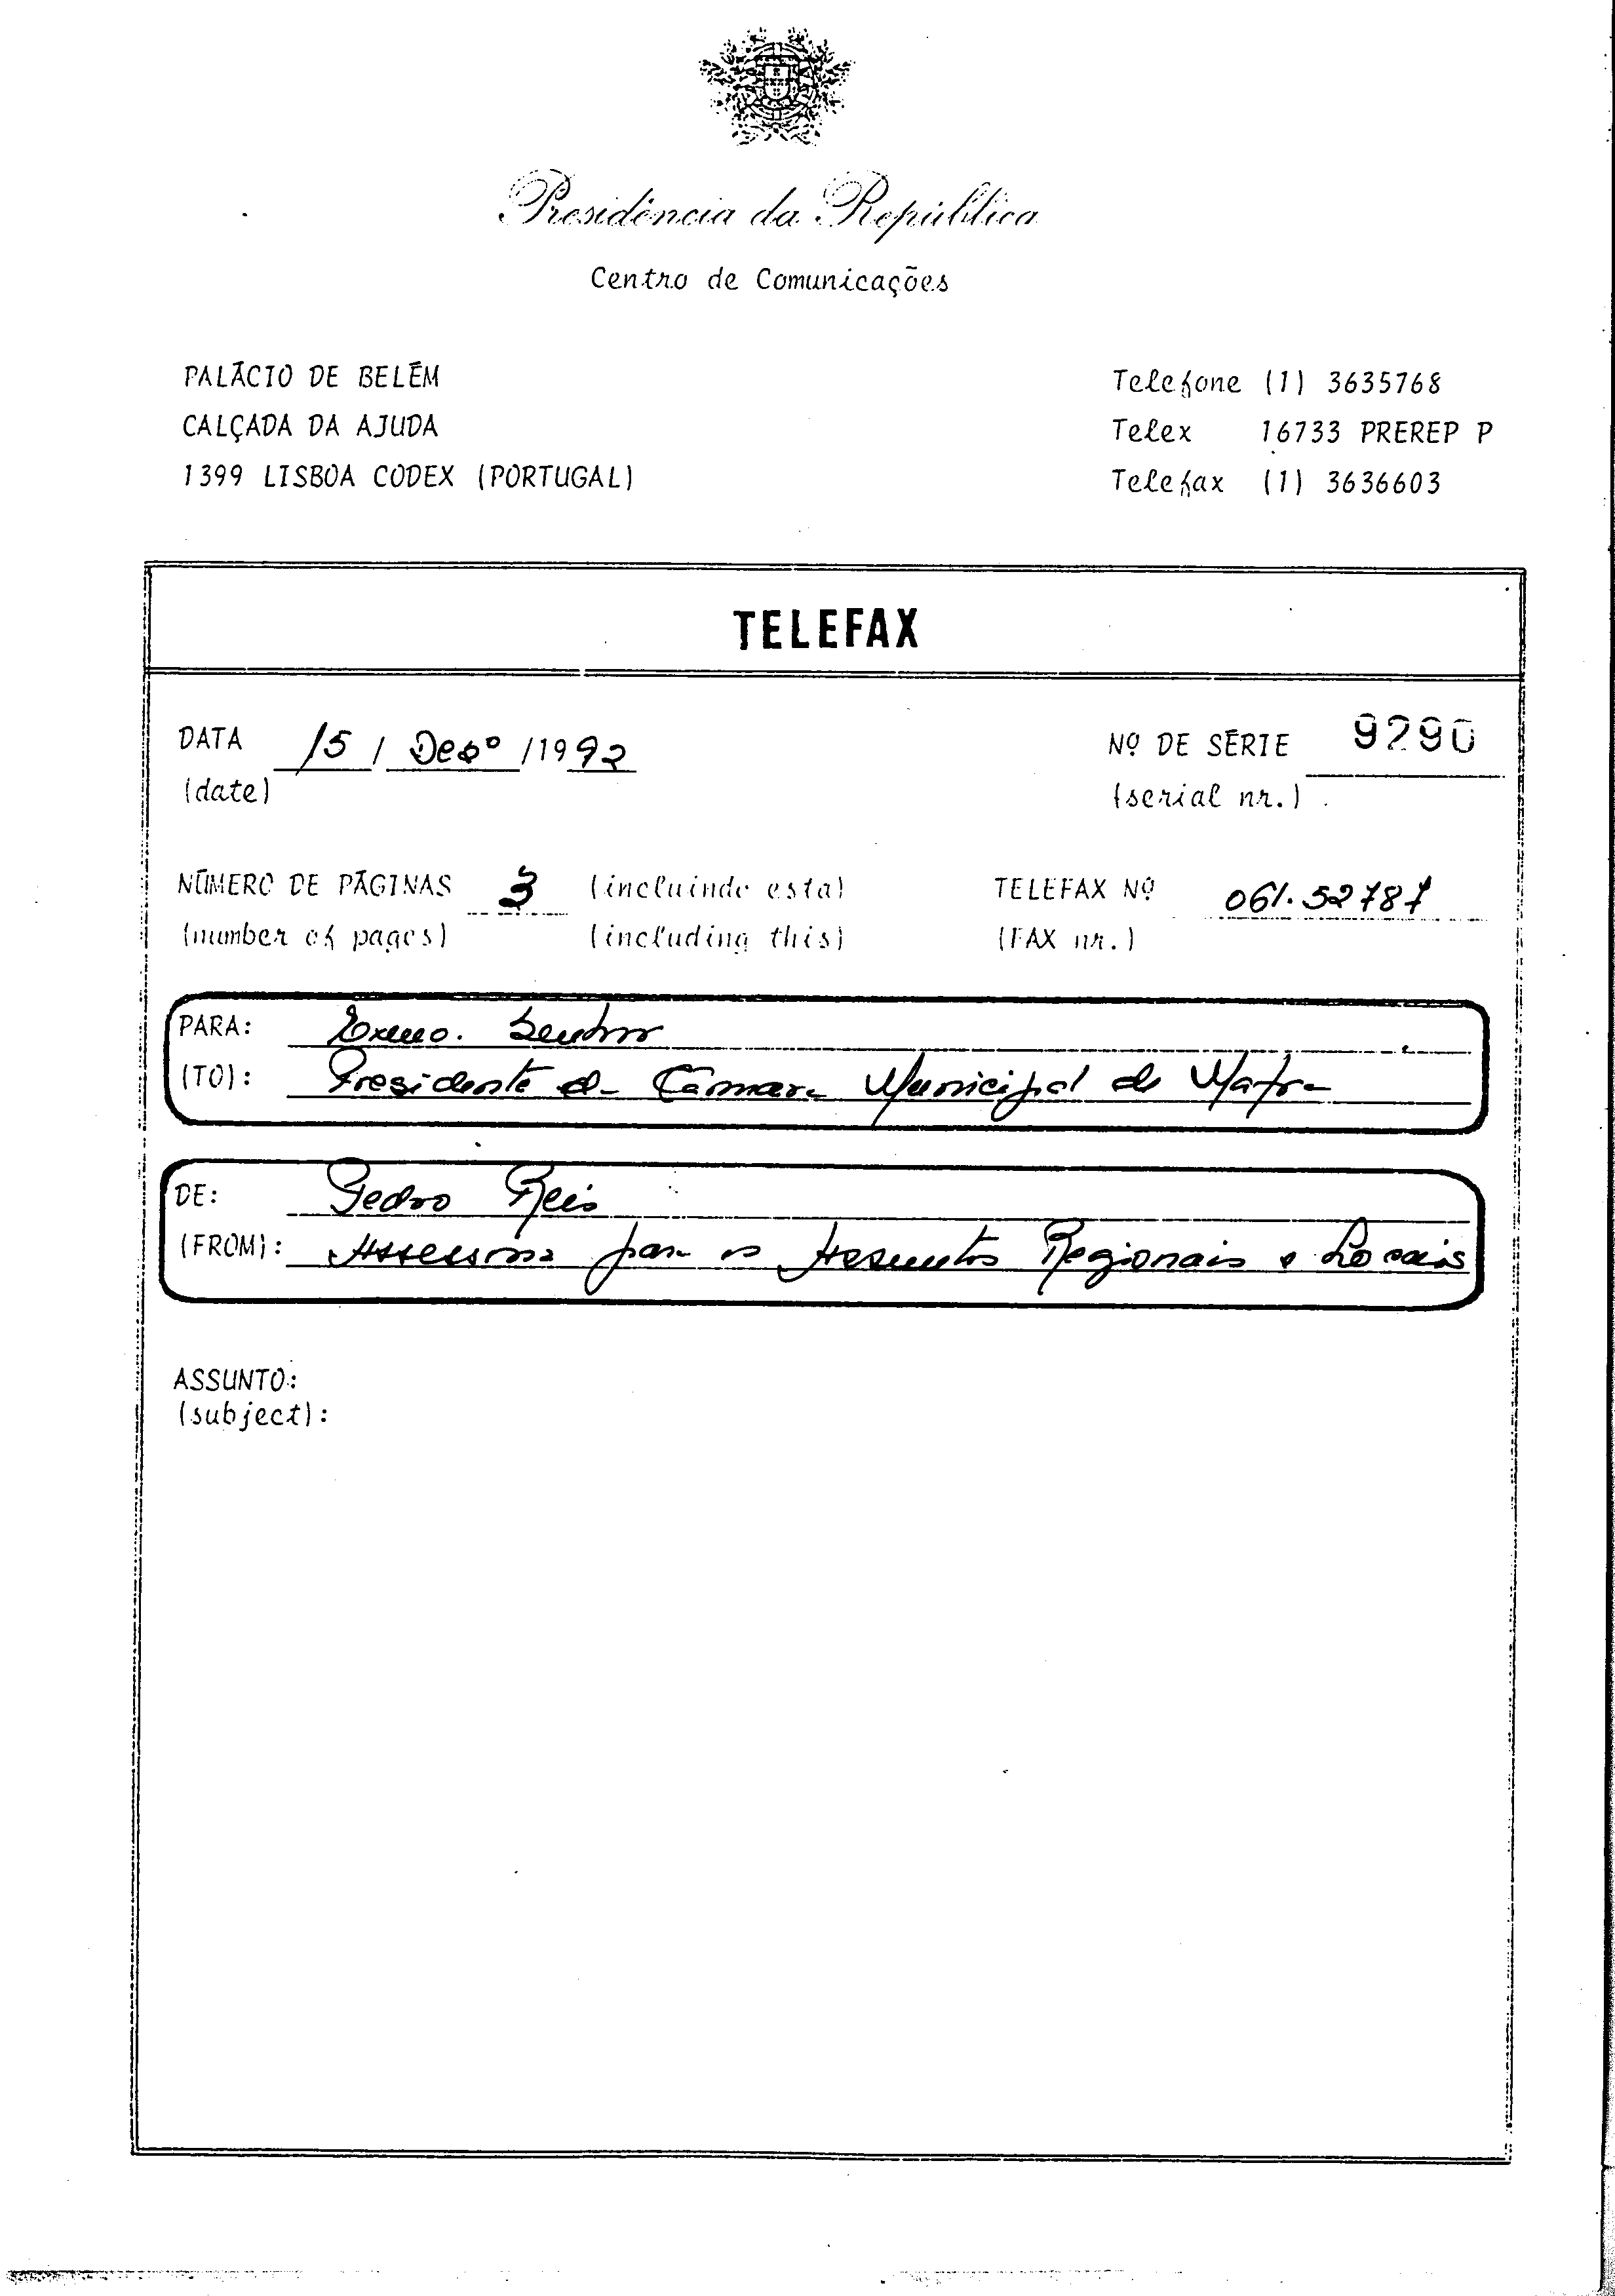 Presidência da República
Centro de Comunicações
PALÁCIO DE BELÉM
CALÇADA DA AJUDA
1399 LISBOA CODEX (PORTUGAL)
Telefone (1) 3635768
Telex 16733 PREREP P
Telefax (1) 3636603
TELEFAX
DATA 15 / Dezº / 1992
(date)
Nº DE SÉRIE 9290
(serial nr.)
NÚMERO DE PÁGINAS 3 (incluindo esta)
(number of pages) (including this)
TELEFAX Nº 061.52787
(FAX nr.)
PARA: Exmo. Senhor
(TO): Presidente da Câmara Municipal de Mafra
DE: Pedro Reis
(FROM): Assessor para os Assuntos Regionais e Locais
ASSUNTO:
(subject):